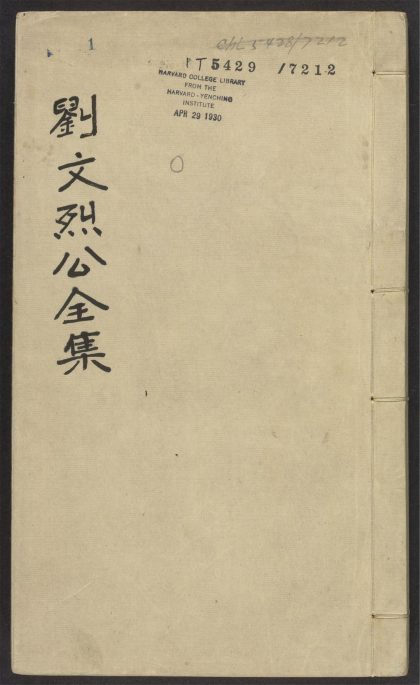 1
CHL 5428/7212
PT5429 /7212
HARVARD COLLEGE LIBRARY
FROM THE
HARVARD-YENCHING
INSTITUTE
APR 29 1930
劉文烈公全集